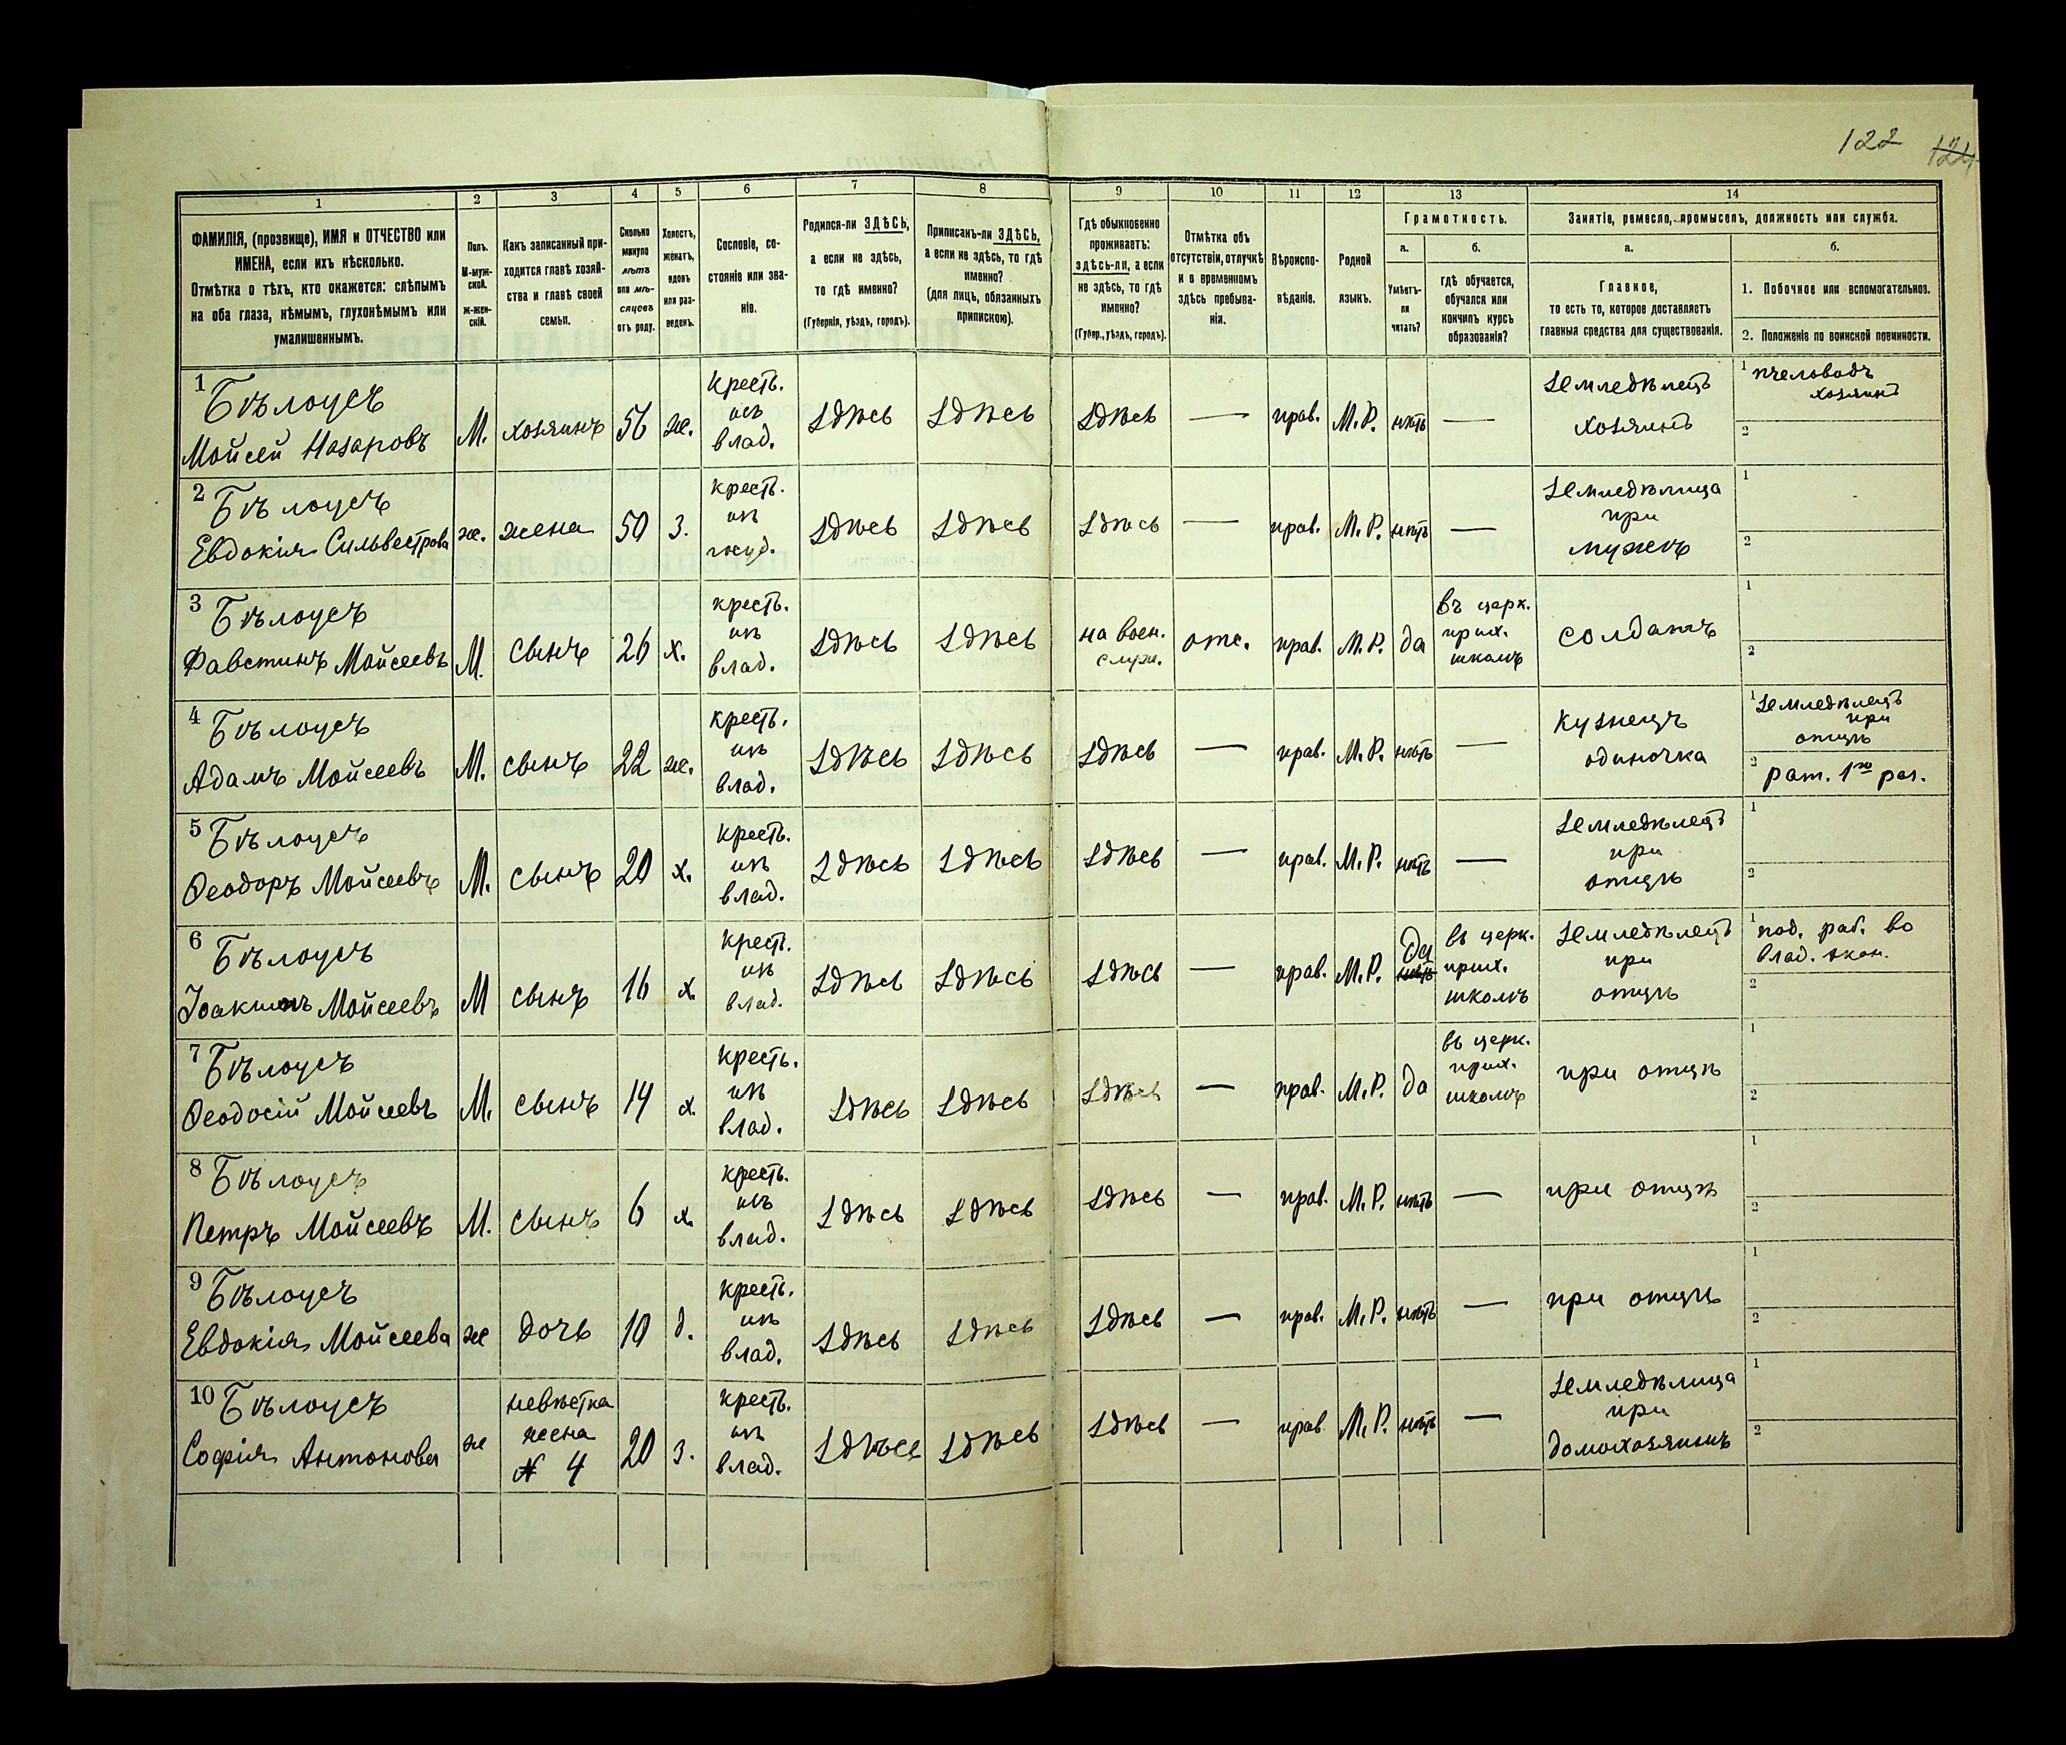 122 124
1 2 3 4 5 6 7 8 9 10 11 12 13 14
ФАМИЛІЯ, (прозвище), ИМЯ и ОТЧЕСТВО или
ИМЕНА, если ихъ нѣсколько.
Отмѣтка о тѣхъ, кто окажется: слѣпымъ
на оба глаза, нѣмымъ, глухонѣмымъ или
умалишеннымъ.
Полъ.
М-муж-
ской.
ж-жен-
скій.
Какъ записанный при-
ходится главѣ хозяй-
ства и главѣ своей
семьи.
Сколько
минуло
лѣтъ
или мѣ-
сяцевъ
отъ роду.
Холостъ,
женатъ,
вдовъ
или раз-
веденъ.
Сословіе, со-
стояніе или зва-
ніе.
Родился-ли ЗДѢСЬ,
а если не здѣсь,
то гдѣ именно?
(Губернія, уѣздъ, городъ).
Приписанъ-ли ЗДѢСЬ,
а если не здѣсь, то гдѣ
именно?
(для лицъ, обязанныхъ
припискою).
Гдѣ обыкновенно
проживаетъ:
здѣсь-ли, а если
не здѣсь, то гдѣ
именно?
(Губер., уѣздъ, городъ).
Отмѣтка объ
отсутствіи, отлучкѣ
и о временномъ
здѣсь пребыва-
ніи.
Вѣроиспо-
вѣданіе.
Родной
языкъ.
Грамотность.
а. б.
Умѣетъ-
ли
читать?
гдѣ обучается,
обучался или
кончилъ курсъ
образованія?
Занятіе, ремесло, промыселъ, должность или служба.
а. б.
Главное,
то есть то, которое доставляетъ
главныя средства для существованія.
1. Побочное или вспомогательное.
2. Положеніе по воинской повинности.
1 Бѣлоусъ
Мойсей Назаровъ
М. хозяинъ 56 ж.
кресть.
изъ
влад.
здѣсь здѣсь здѣсь — прав. М.Р. нѣтъ —
земледѣлецъ
хозяинъ
1 пчеловодъ
хозяинъ
2
2 Бѣлоусъ
Евдокія Сильвестрова
ж. жена 50 з.
кресть.
изъ
здѣсь здѣсь здѣсь — прав. М.Р. нѣтъ —
земледѣлица
при
мужѣ
1
2
3 Бѣлоусъ
Фавстинъ Мойсеевъ
М. сынъ 26 х.
кресть.
изъ
влад.
здѣсь здѣсь
на воен.
служ.
отс. прав. М.Р. да
въ церк.
прих.
школѣ
солдатъ
1
2
4 Бѣлоусъ
Адамъ Мойсеевъ
М. сынъ 22 ж.
кресть.
изъ
влад.
здѣсь здѣсь здѣсь — прав. М.Р. нѣтъ —
кузнецъ
одиночка
1 земледѣлецъ
при
отцѣ
2 рат. 1го раз.
5 Бѣлоусъ
Ѳеодоръ Мойсеевъ
М. сынъ 20 х.
кресть.
изъ
влад.
здѣсь здѣсь здѣсь — прав. М.Р. нѣтъ —
земледѣлецъ
при
отцѣ
1
2
6 Бѣлоусъ
Іоакимъ Мойсеевъ
М сынъ 16 х
кресть.
изъ
влад.
здѣсь здѣсь здѣсь — прав. М.Р.
да
нѣтъ
въ церк.
прих.
школѣ
земледѣлецъ
при
отцѣ
1 под. раб. во
влад. экон.
2
7 Бѣлоусъ
Ѳеодосій Мойсеевъ
М. сынъ 14 х.
кресть.
изъ
влад.
здѣсь здѣсь здѣсь — прав. М.Р. да
въ церк.
прих.
школѣ
при отцѣ
1
2
8 Бѣлоусъ
Петръ Мойсеевъ
М. сынъ 6 х.
кресть.
изъ
влад.
здѣсь здѣсь здѣсь — прав. М.Р. нѣтъ —
при отцѣ
1
2
9 Бѣлоусъ
Евдокія Мойсеева
ж дочь 10 д.
кресть.
изъ
влад.
здѣсь здѣсь здѣсь — прав. М.Р. нѣтъ —
при отцѣ
1
2
10 Бѣлоусъ
Софія Антонова
ж
невѣстка
жена
№ 4
20 з.
кресть.
изъ
влад.
здѣсь здѣсь здѣсь — прав. М.Р. нѣтъ —
земледѣлица
при
домохозяинѣ
1
2